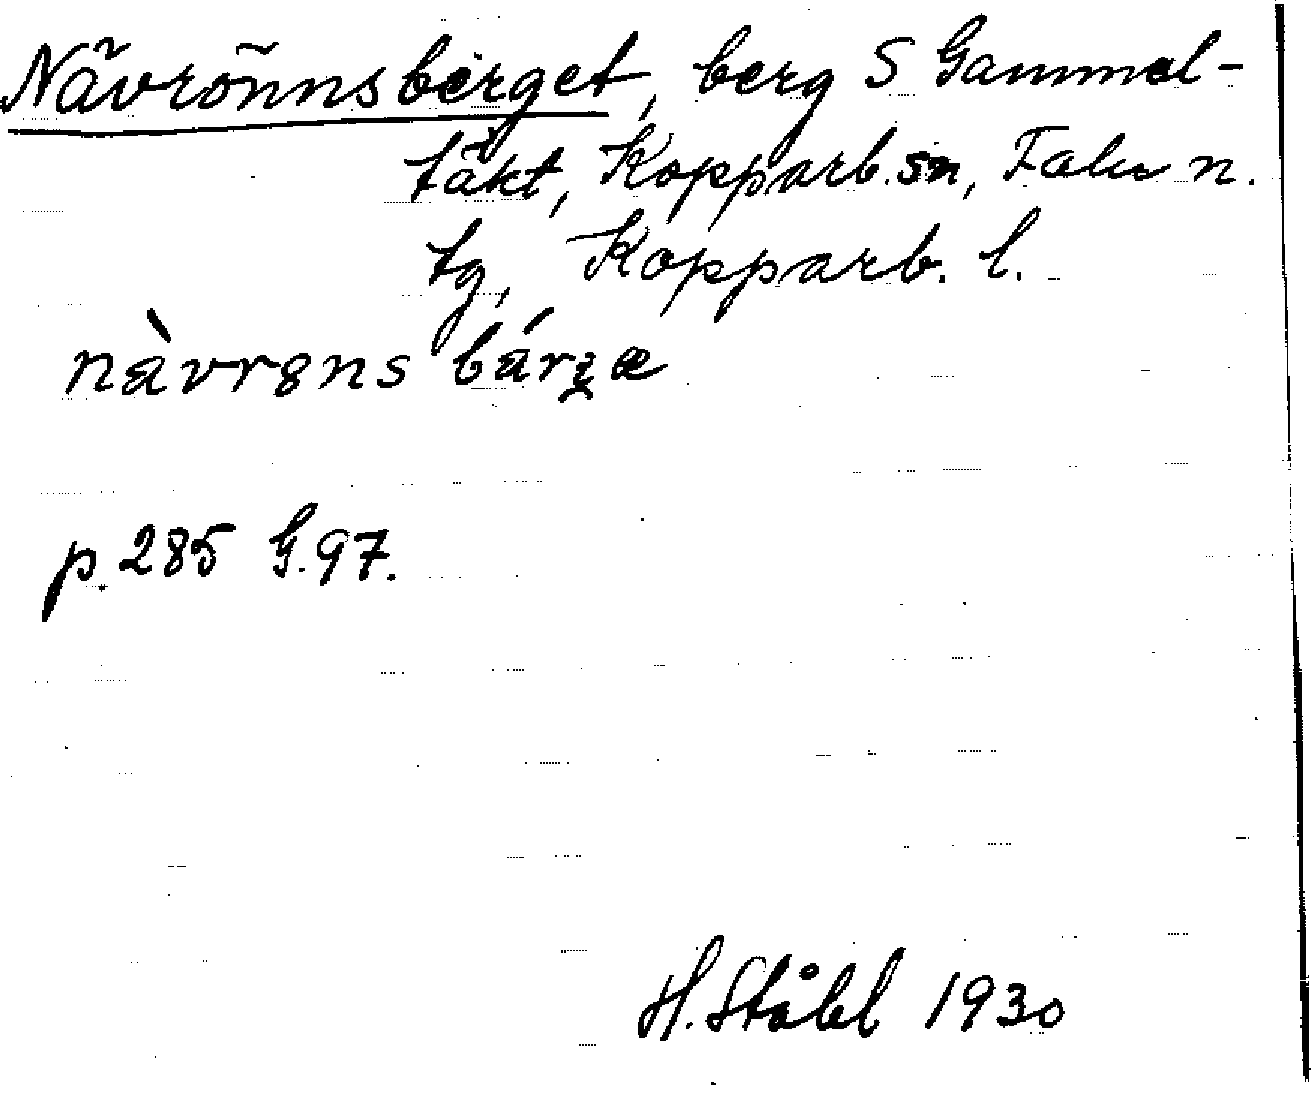 Nävrönnsberget, berg S Gammel-
täkt, Kopparb. sn, Falu n.
tg, Kopparb. l.
nàvrøns bárʒæ
p. 285 G. 97.
H. Ståhl 1930